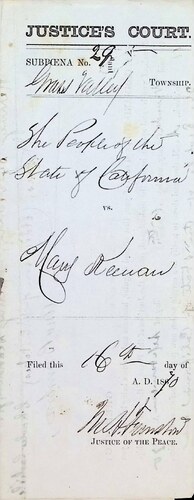 JUSTICE'S COURT.
SUBPŒNA No. 29
Grass Valley TOWNSHIP.
The People of the
State of California
vs.
Mary Keenan
Filed this 16th day of
A. D. 1870
JUSTICE OF THE PEACE.